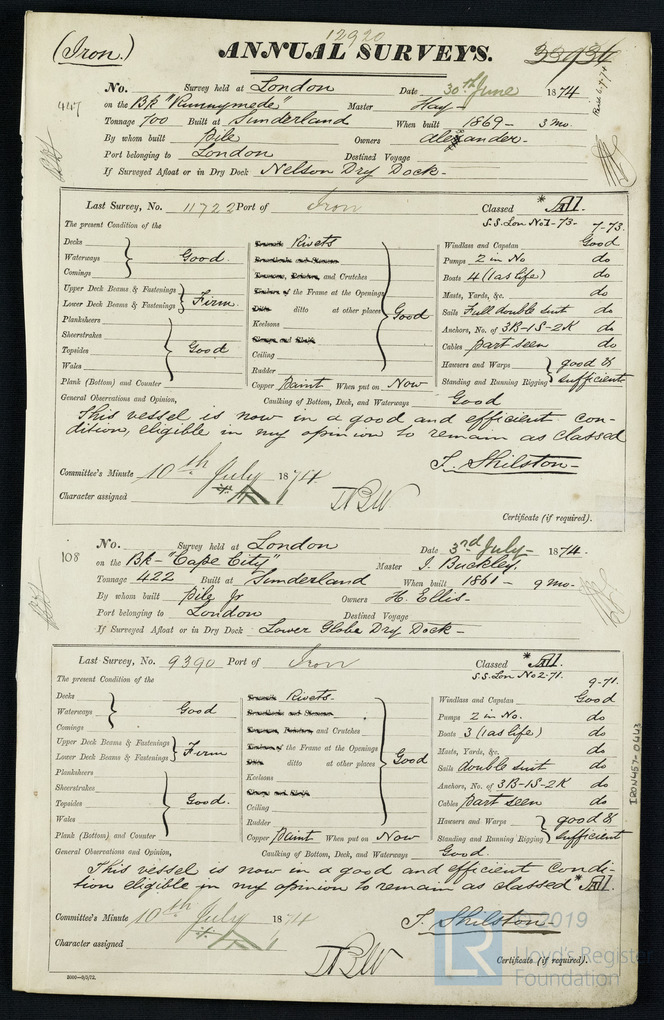 12920
(Iron.) ANNUAL SURVEYS. 33934
No. Survey held at London Date 30th June 1874
447 on the Bk "Runnymede" Master Hay
Tonnage 700 Built at Sunderland When built 1869 - 3 mo.
By whom built Pile Owners Alexander
Port belonging to London Destined Voyage
If Surveyed Afloat or in Dry Dock Nelson Dry Dock
Last Survey, No. 11722 Port of Iron Classed
S.S. Lon No1-73- 7-73.
The present Condition of the
Decks
Waterways Good.
Comings
Upper Deck Beams & Fastenings
Lower Deck Beams & Fastenings Firm
Planksheers
Sheerstrakes
Topsides Good
Wales
Plank (Bottom) and Counter
Rivets
and Crutches
of the Frame at the Openings
ditto at other places Good
Keelsons
Ceiling
Rudder
Copper Paint When put on Now
Windlass and Capstan Good
Pumps 2 in No do
Boats 4 (1 as life) do
Masts, Yards, &c. do
Sails Full double suit do
Anchors, No. of 3B-1S-2K do
Cables part seen do
Hawsers and Warps good &
Standing and Running Rigging sufficient
General Observations and Opinion, Caulking of Bottom, Deck, and Waterways Good
This vessel is now in a good and efficient con-
dition, eligible in my opinion to remain as classed
T. Skilston
Committee's Minute 10th July 1874
Character assigned
Certificate (if required).
108 No. Survey held at London Date 3rd July 1874.
on the Bk - "Cape City" Master J. Buckley
Tonnage 422 Built at Sunderland When built 1861 - 9 mo.
By whom built Pile Jr Owners H. Ellis
Port belonging to London Destined Voyage
If Surveyed Afloat or in Dry Dock Lower Globe Dry Dock
Last Survey, No. 9390 Port of Iron Classed
S.S. Lon No2-71. 9-71.
The present Condition of the
Decks
Waterways Good
Comings
Upper Deck Beams & Fastenings
Lower Deck Beams & Fastenings Firm
Planksheers
Sheerstrakes
Topsides Good.
Wales
Plank (Bottom) and Counter
Rivets
and Crutches
of the Frame at the Openings
ditto at other places Good
Keelsons
Ceiling
Rudder
Copper Paint When put on Now
Windlass and Capstan Good
Pumps 2 in No. do
Boats 3 (1 as life) do
Masts, Yards, &c. do
Sails double suit do
Anchors, No. of 3B-1S-2K do
Cables part seen do
Hawsers and Warps good &
Standing and Running Rigging sufficient
General Observations and Opinion, Caulking of Bottom, Deck, and Waterways Good.
This vessel is now in a good and efficient condi-
tion eligible in my opinion to remain as classed
T. Skilston
Committee's Minute 10th July 1874
Character assigned
Certificate (if required).
IRON457-0443
© 2019
LR Lloyd's Register
Foundation